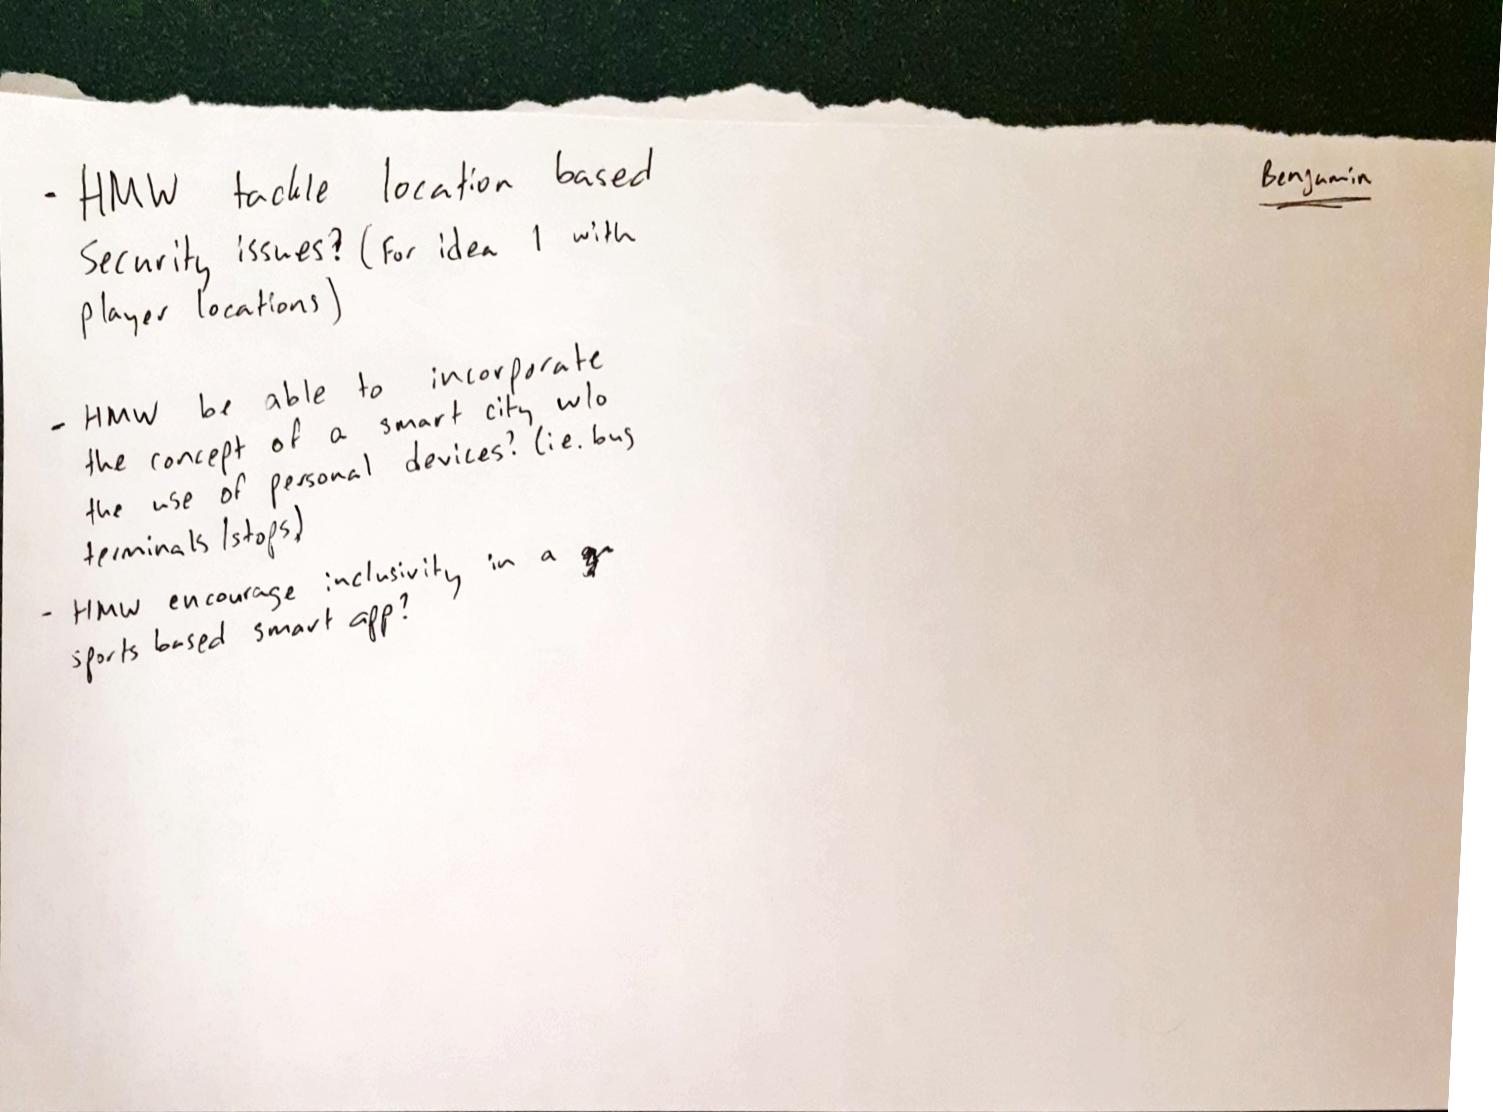 Benjamin
- HMW tackle location based
Security issues? (For idea 1 with
player locations)
- HMW be able to incorporate
the concept of a smart city w/o
the use of personal devices? (i.e. bus
terminals/stops)
- HMW encourage inclusivity in a
sports based smart app?